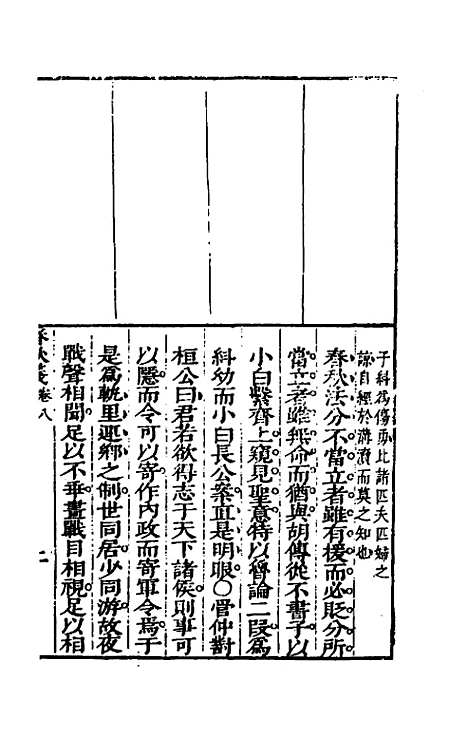 子糾為傷勇比諸匹夫匹婦之
諒自經於溝瀆而莫之知也
春秋法分不當立者雖有援而必貶分所
當立者雖無命而猶與胡傳從不書子以
小白繫齊上窺見聖意特以魯論二段為
糾幼而小白長公羍直是明眼○管仲對
桓公曰君若欲得志于天下諸侯則事可
以隱而令可以寄作內政而寄軍令焉于
是為軌里連鄉之制世同居少同游故夜
戰聲相聞足以不乖晝戰目相視足以相
春秋義卷八
二